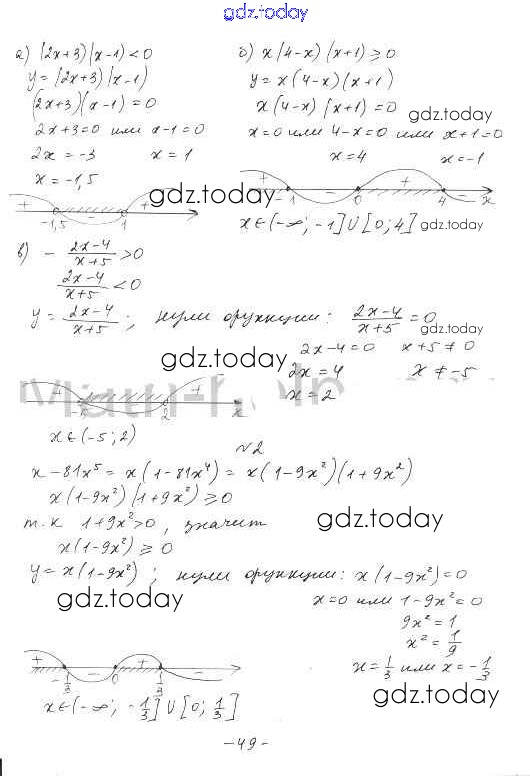 gdz.today
а) (2x+3)(x-1)<0
y=(2x+3)(x-1)
(2x+3)(x-1)=0
2x+3=0 или x-1=0
2x=-3 x=1
x=-1,5
+ - +
-1,5 1
б) x(4-x)(x+1)≥0
y=x(4-x)(x+1)
x(4-x)(x+1)=0
gdz.today
x=0 или 4-x=0 или x+1=0
x=4 x=-1
gdz.today
+ - + -
-1 0 4 x
x∈(-∞;-1]∪[0;4]
gdz.today
в) - (2x-4)/(x+5) >0
(2x-4)/(x+5) <0
y= (2x-4)/(x+5) ; нули функции: (2x-4)/(x+5) =0
gdz.today
2x-4=0 x+5≠0
gdz.today
2x=4 x≠-5
x=2
+ - +
-5 2 x
x∈(-5;2)
№2
x-81x⁵=x(1-81x⁴)=x(1-9x²)(1+9x²)
x(1-9x²)(1+9x²)≥0
т.к 1+9x²>0, значит
gdz.today
x(1-9x²)≥0
y=x(1-9x²); нули функции: x(1-9x²)=0
gdz.today
x=0 или 1-9x²=0
9x²=1
x²=1/9
x=1/3 или x=-1/3
+ - + -
-1/3 0 1/3
gdz.today
x∈(-∞;-1/3]∪[0;1/3]
-49-